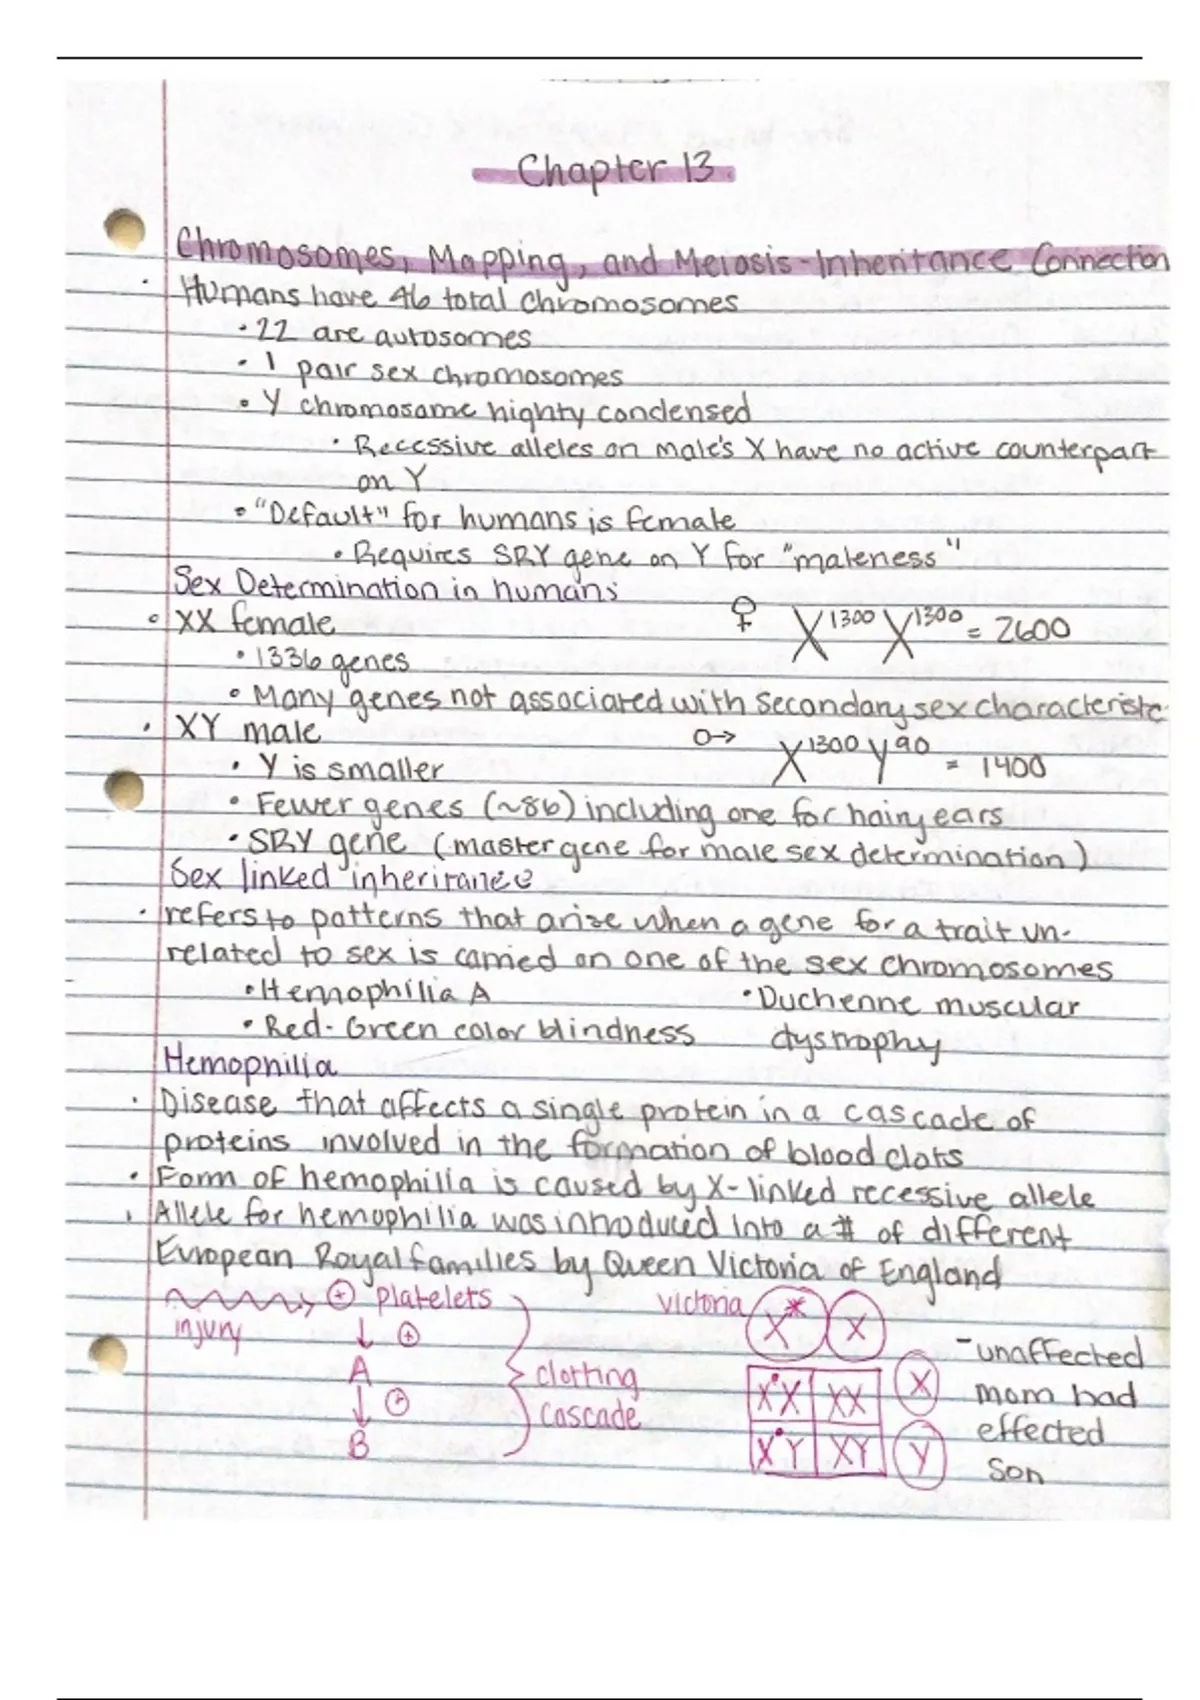 Chapter 13
Chromosomes, Mapping, and Meiosis-Inheritance Connection
• Humans have 46 total chromosomes
• 22 are autosomes
• 1 pair sex chromosomes
• Y chromosome highly condensed
• Recessive alleles on male's X have no active counterpart
on Y
• "Default" for humans is female
• Requires SRY gene on Y for "maleness"
Sex Determination in humans
• XX female ♀ X¹³⁰⁰ X¹³⁰⁰ = 2600
• 1336 genes
• Many genes not associated with secondary sex characteristic
• XY male O→ X¹³⁰⁰ Y⁹⁰ = 1400
• Y is smaller
• Fewer genes (~86) including one for hairy ears
• SRY gene (master gene for male sex determination)
Sex linked inheritance
• refers to patterns that arise when a gene for a trait un-
related to sex is carried on one of the sex chromosomes
• Hemophilia A • Duchenne muscular
• Red-Green color blindness dystrophy
Hemophilia
• Disease that affects a single protein in a cascade of
proteins involved in the formation of blood clots
• Form of hemophilia is caused by X-linked recessive allele
• Allele for hemophilia was introduced into a # of different
European Royal families by Queen Victoria of England
⊕ platelets
injury
↓ ⊕
A
↓
B
clotting
cascade
victoria X* X
X•X XX X
X•Y XY Y
-unaffected
mom had
effected
son